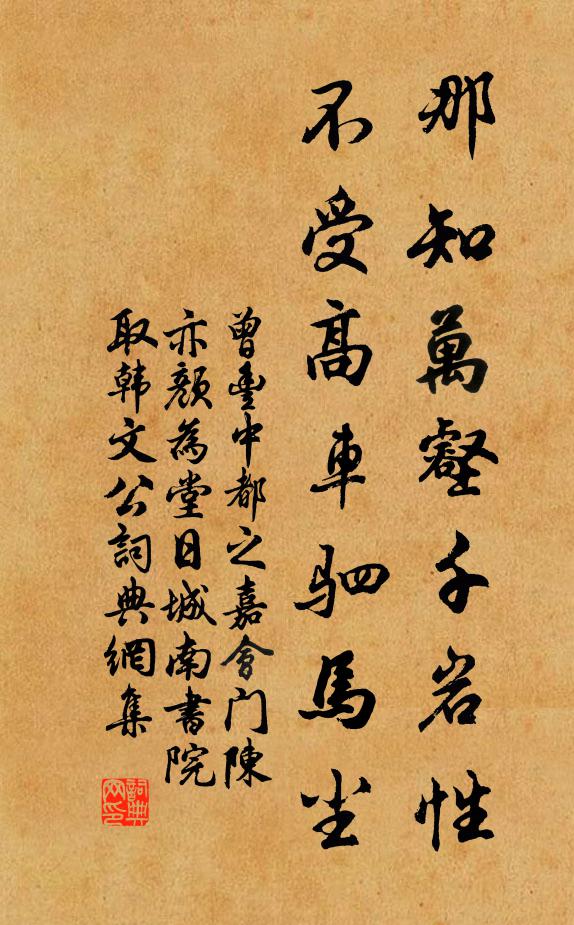 那知萬壑千岩性
不受高車駟馬塵
曾豊中都之嘉會门陳
亦顔為堂日城南書院
取韩文公詞典網集
詞典网印